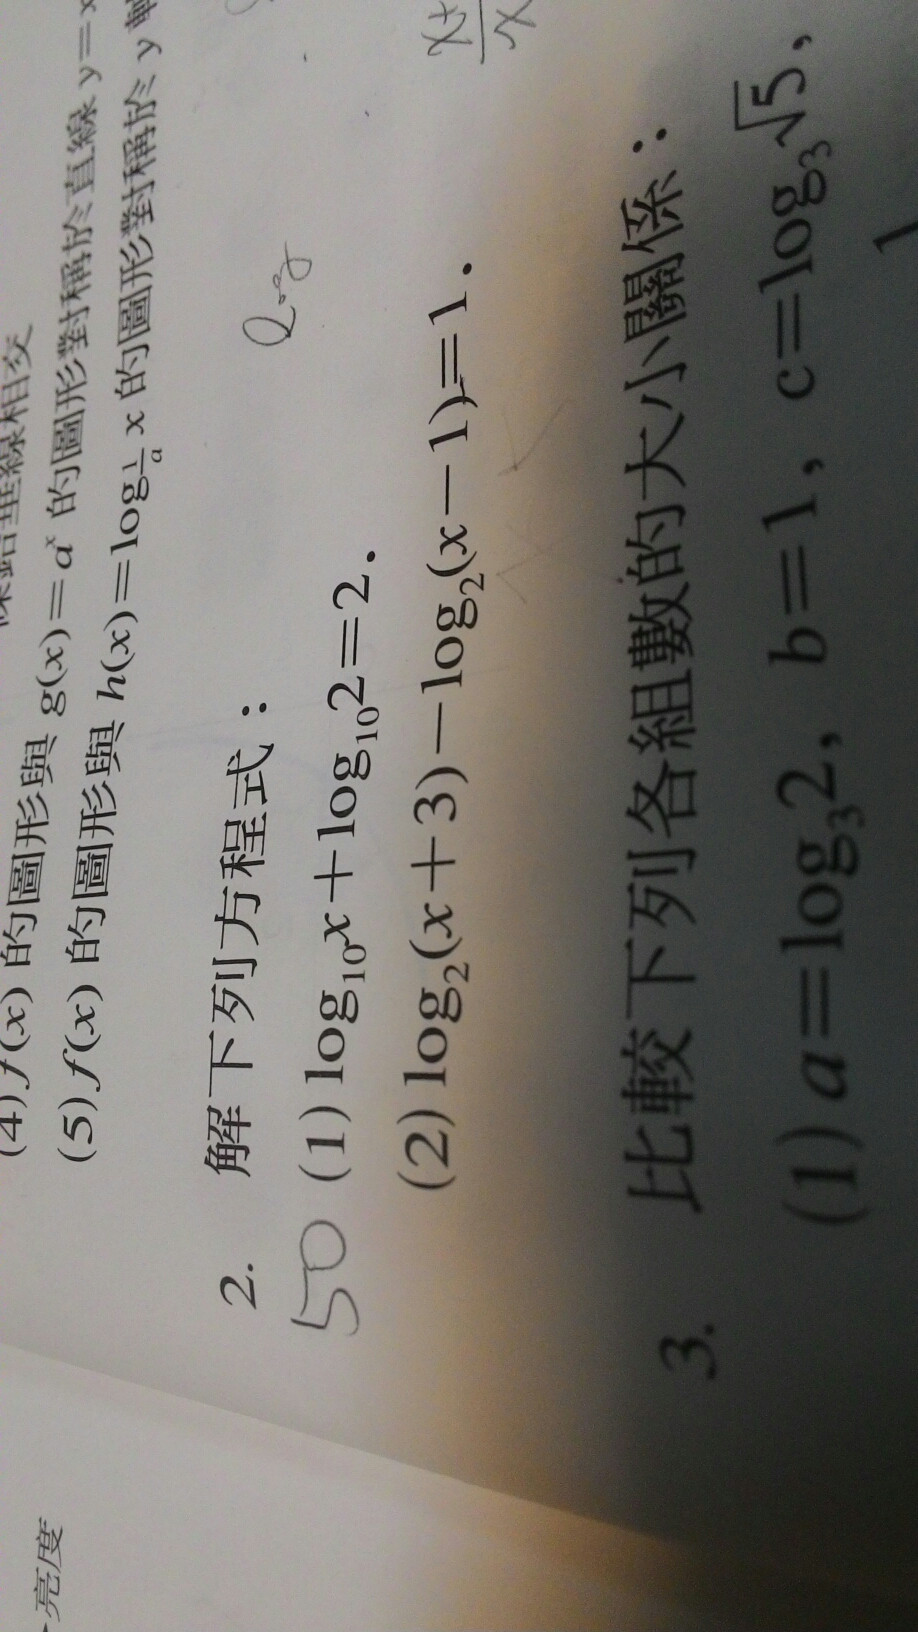 (4) f(x) 的圖形與 g(x)=aˣ 的圖形對稱於直線 y=x
(5) f(x) 的圖形與 h(x)=log_{1/a} x 的圖形對稱於 y
log
2. 解下列方程式：
50 (1) log₁₀x+log₁₀2=2.
(2) log₂(x+3)-log₂(x-1)=1.
3. 比較下列各組數的大小關係：
(1) a=log₃2, b=1, c=log₃√5,
亮度